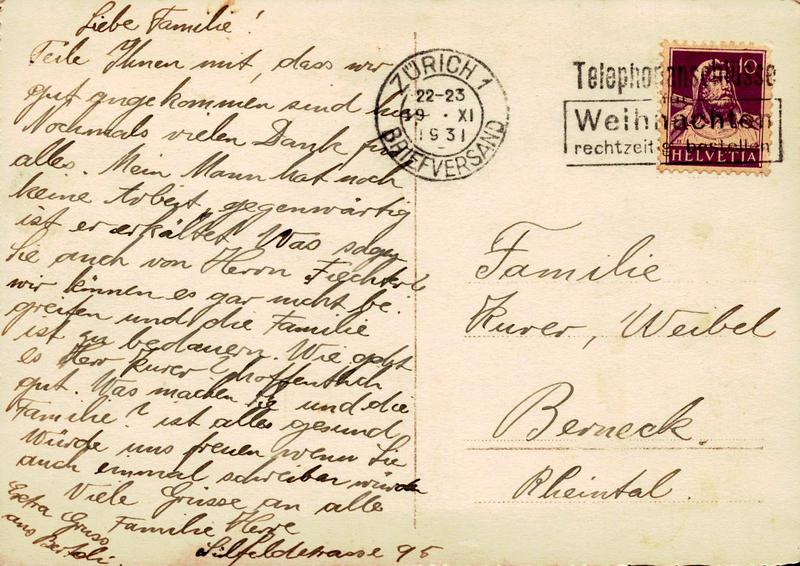 Liebe Familie!
Teile Ihnen mit, dass wir
gut angekommen sind
Nochmals vielen Dank für
alles. Mein Mann hat noch
keine Arbeit, gegenwärtig
ist er erkältet. Was sagen
Sie auch von Herrn Fiechter?
wir können es gar nicht be-
greifen und die Familie
ist zu bedauern. Wie geht
es Herr Kurer? hoffentlich
gut. Was machen Sie und die
Familie? ist alles gesund
Würde uns freuen wenn Sie
auch einmal schreiben würden
Viele Grüsse an alle
Familie Herre
Silfeldstrasse 95
Extra Gruss
ans Berteli.
ZÜRICH 1
22-23
19 · XI
1931
BRIEFVERSAND
Telephonanschlüsse
Weihnachten
rechtzeitig bestellen
10
HELVETIA
Familie
Kurer, Weibel
Berneck.
Rheintal.